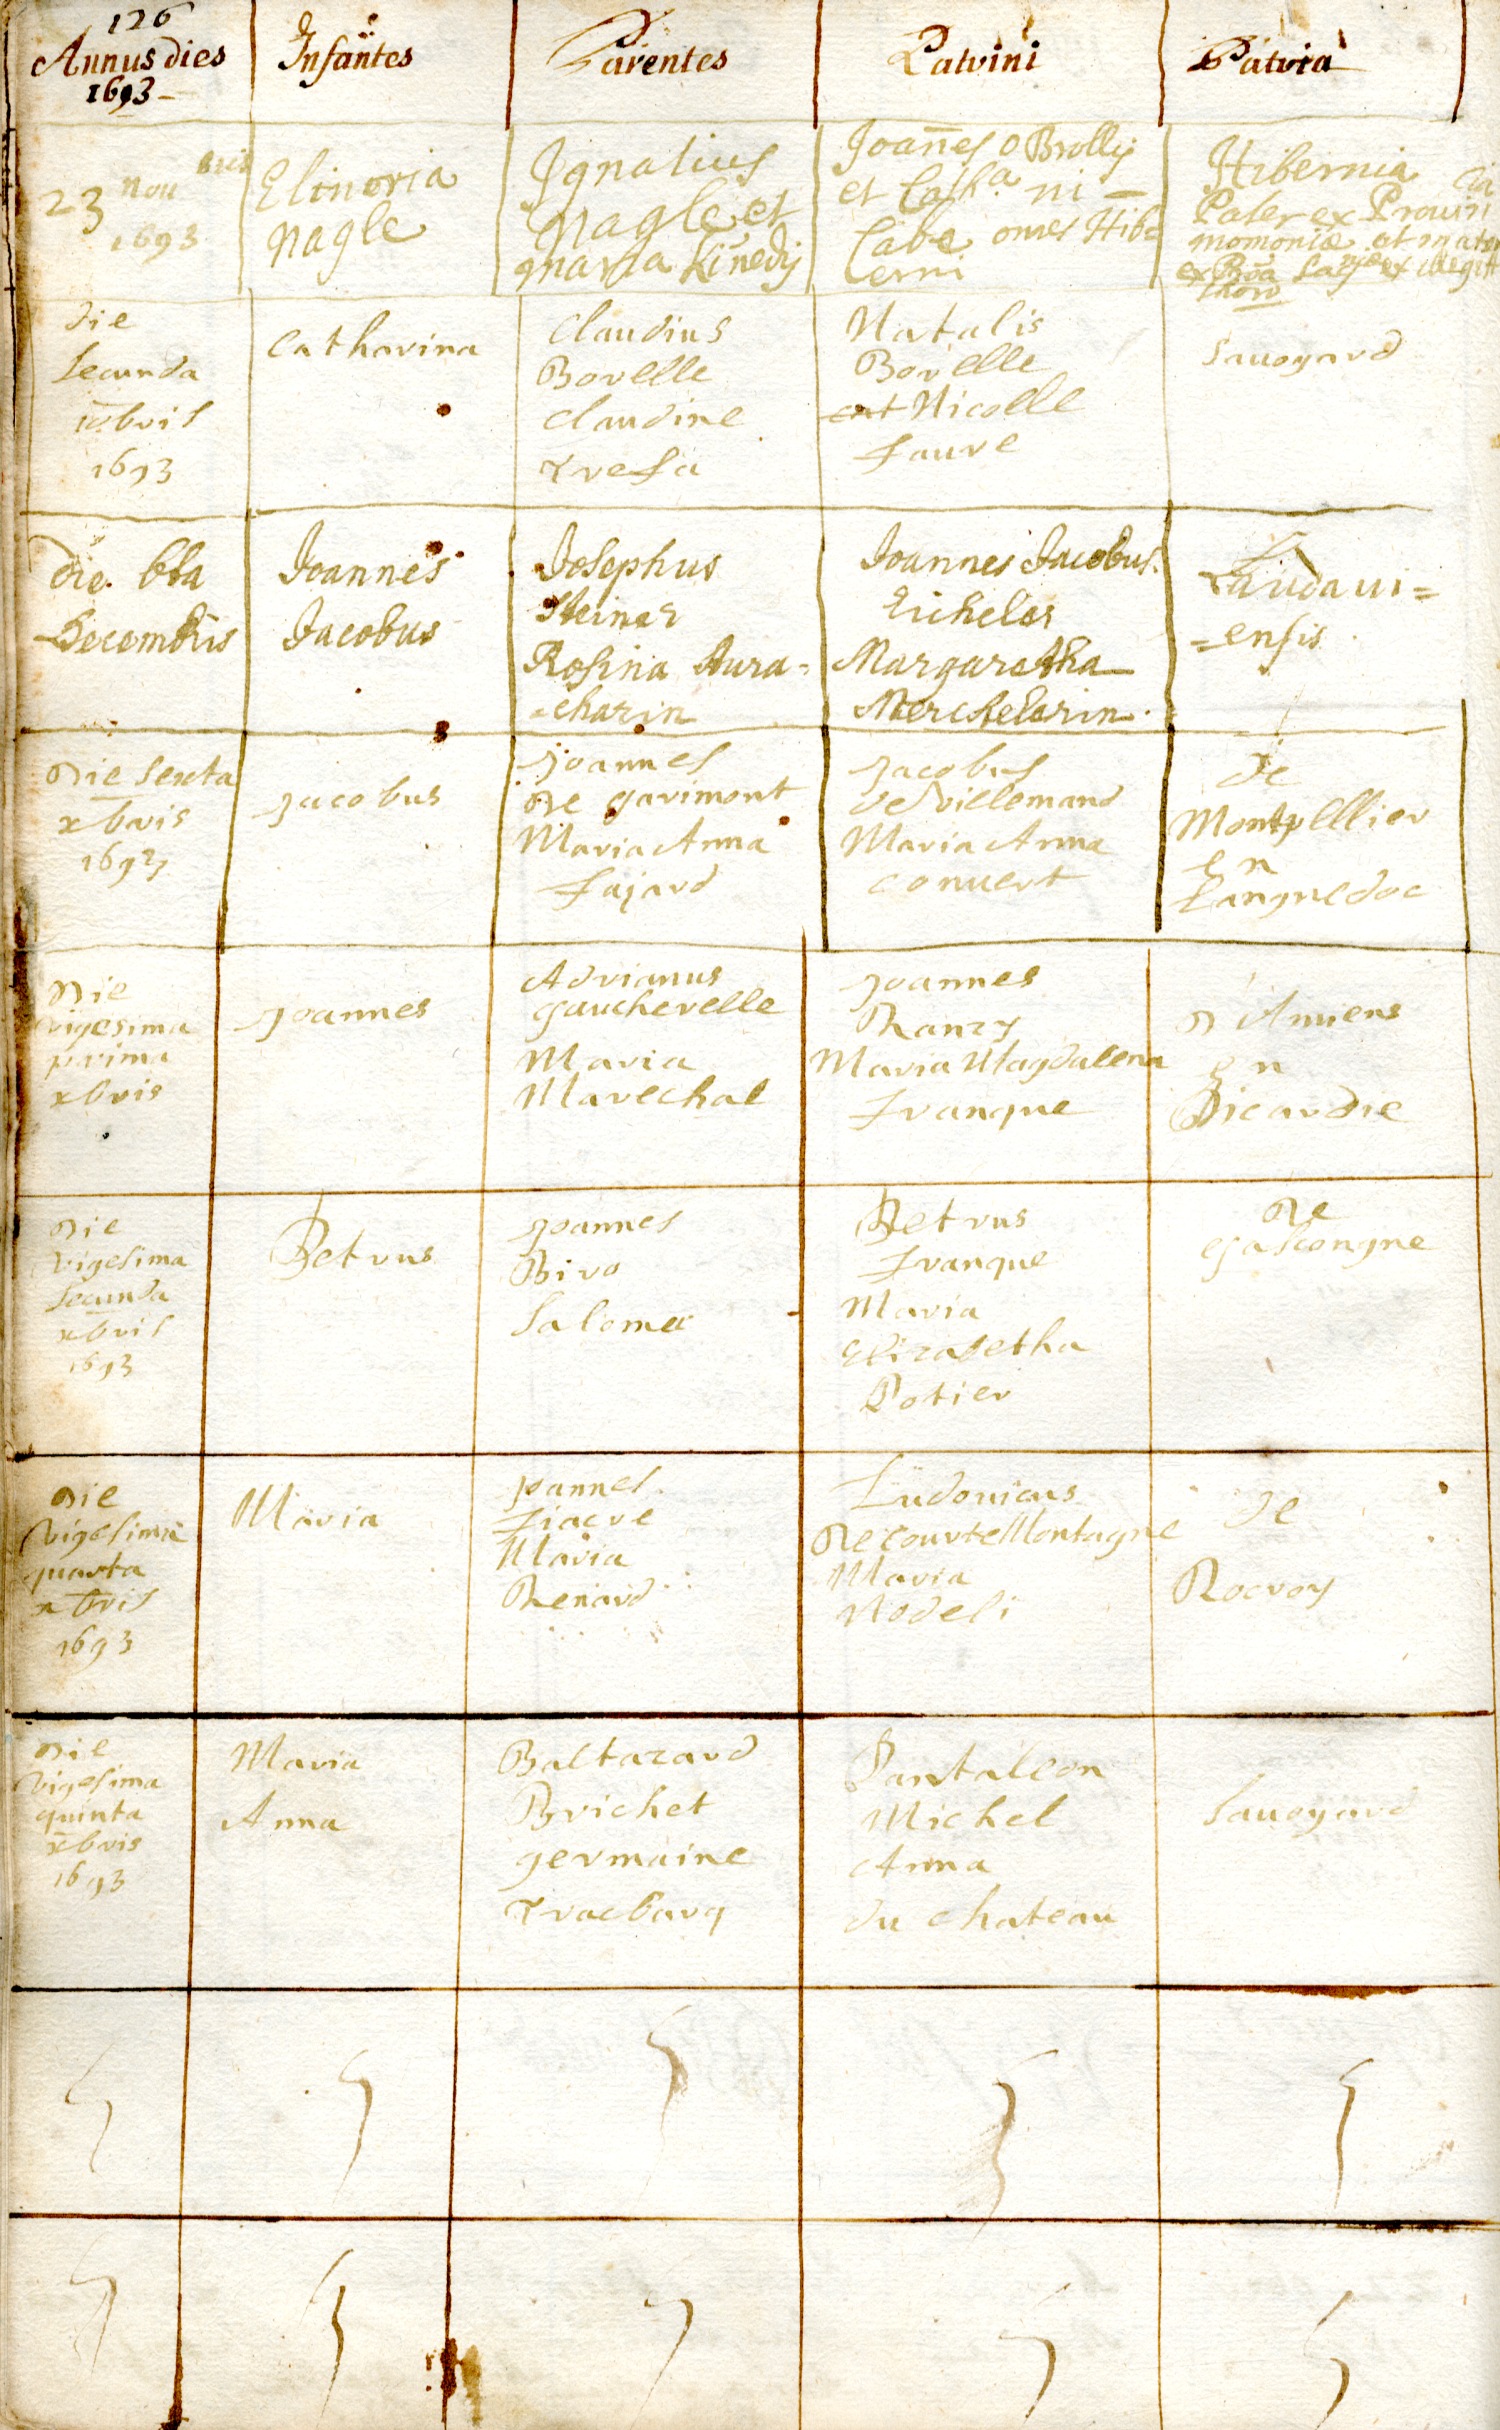 126
Annus dies
1693
Infantes
Parentes
Patrini
Patria
23 Nou bris
1693
Elinoria
Nagle
Ignatius
Nagle et
maria Kiñedij
Joañes o Brollij
et Cath.a ni =
Cabe omes Hib=
erni
Hibernia
Pater ex Prouin
momoniæ at mater
ex
thoro
die
secunda
xbris
1693
Catharina
Claudius
Borelle
Claudine
Tresa
Natalis
Borelle
et Nicolle
faure
Sauoyard
die 6ta
Decembris
Joannes
Jacobus
Josephus
Steiner
Rosina Aura=
=charin
Joannes Jacobus
Eicheler
Margaretha
Merckelerin
=ensis
die sexta
xbris
1693
jacobus
joannes
de garimont
Maria Anna
fajard
jacobus
de villemand
Maria Anna
conuert
de
Montpellier
en
Languedoc
die
vigesima
prima
xbris
joannes
Adrianus
gaucherelle
Maria
Marechal
joannes
Ranzy
Maria Magdalena
franque
d'Amiens
en
Picardie
die
vigesima
secunda
xbris
1693
Petrus
joannes
Biro
Salome
Petrus
franque
Maria
Elizabetha
Potier
de
gascongne
die
vigesima
quarta
xbris
1693
Maria
joannes
fiacre
Maria
Renard
Ludouicus
de courteMontagne
Maria
Nodeli
de
Rocroy
die
vigesima
quinta
xbris
1693
Maria
Anna
Baltazard
Brichet
germaine
Tracbarq
Pantaleon
Michel
Anna
du chateau
Sauoyard